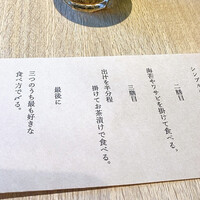 シンプル
二膳目
海苔やワサビを掛けて食べる。
三膳目
出汁を半分程
掛けてお茶漬けで食べる。
最後に
三つのうち最も好きな
食べ方で〆る。